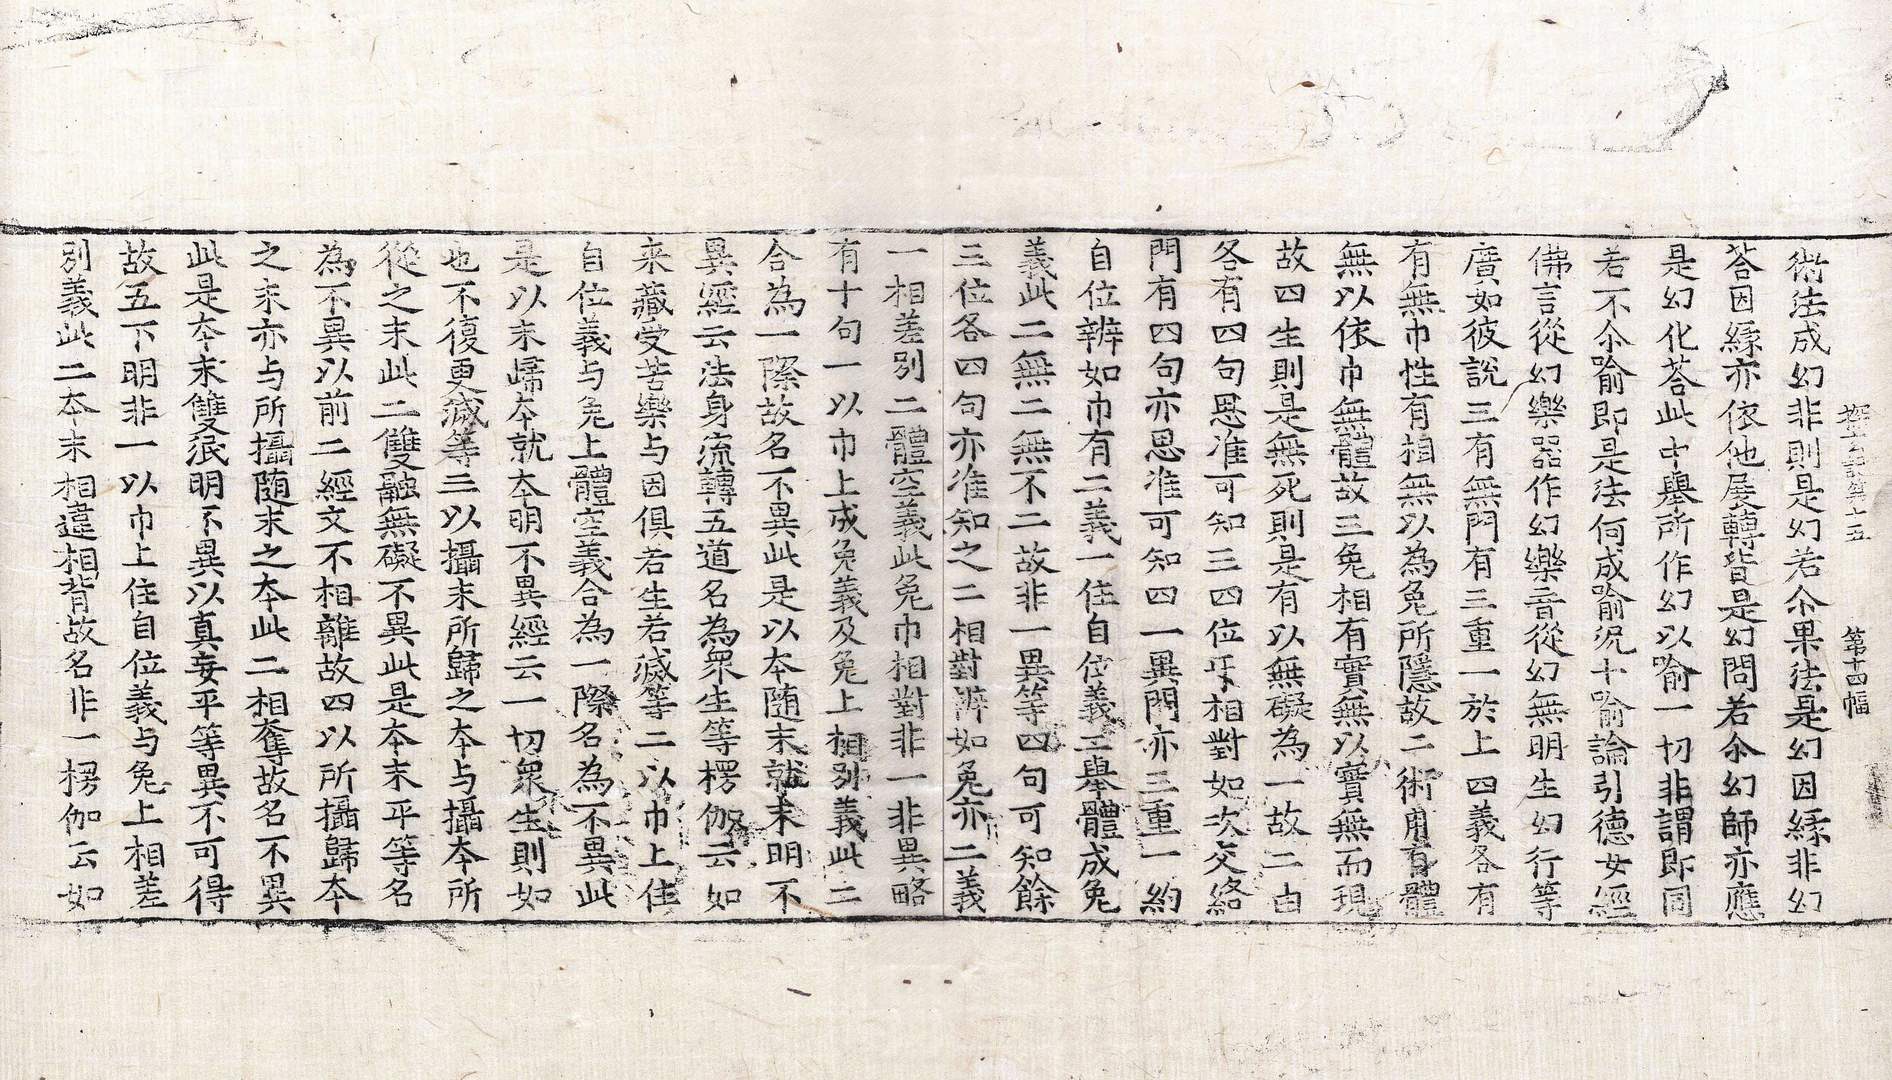 探玄記第十五 第十四幅
術法成幻非則是幻若尒果法是幻因縁非幻
荅因縁亦依他展轉皆是幻問若尒幻師亦應
是幻化荅此中舉所作幻以喻一切非謂即同
若不尒喻即是法何成喻況十喻論引德女經
佛言從幻樂器作幻樂音從幻無明生幻行等
廣如彼說三有無門有三重一於上四義各有
有無巾性有相無以為兔所隱故二術用有體
無以依巾無體故三兔相有實無以實無而現
故四生則是無死則是有以無礙為一故二由
各有四句思准可知三四位㸦相對如次交絡
門有四句亦思准可知四一異門亦三重一約
自位辨如巾有二義一住自位義二舉體成兔
義此二無二無不二故非一異等四句可知餘
三位各四句亦准知之二相對辨如兔亦二義
一相差別二體空義此兔巾相對非一非異略
有十句一以巾上成兔義及兔上相別義此二
合為一際故名不異此是以夲随末就末明不
異經云法身流轉五道名為衆生等楞伽云如
来藏受苦樂与因俱若生若滅等二以巾上住
自位義与兔上體空義合為一際名為不異此
是以末歸夲就夲明不異經云一切衆生則如
也不復更滅等三以攝末所歸之夲与攝夲所
從之末此二雙融無礙不異此是夲末平等名
為不異以前二經文不相離故四以所攝歸夲
之末亦与所攝随末之夲此二相奪故名不異
此是夲末雙泯明不異以真妄平等異不可得
故五下明非一以巾上住自位義与兔上相差
別義此二夲末相違相背故名非一楞伽云如